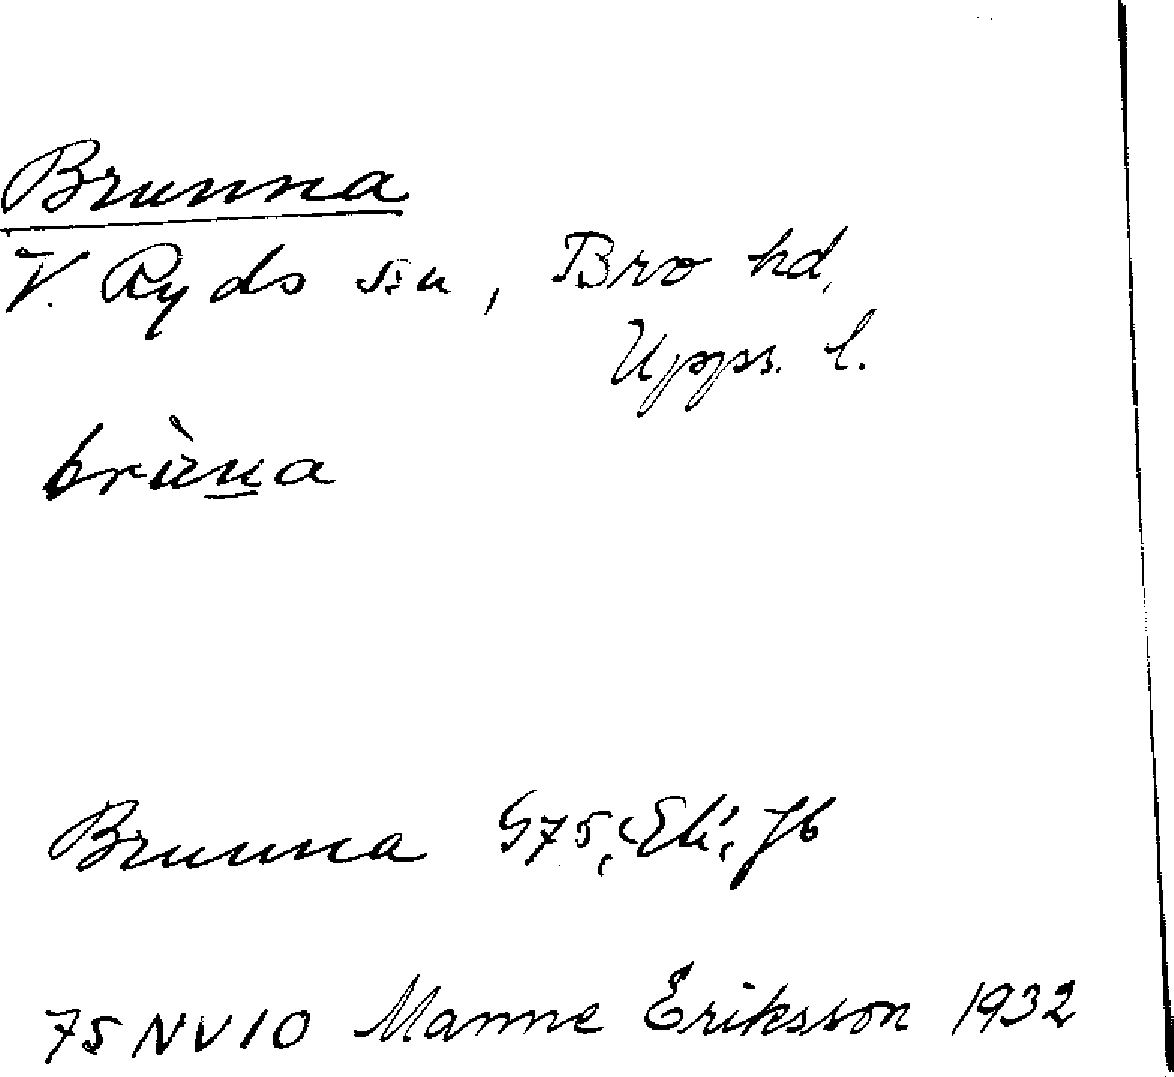 Brunna
V. Ryds sn, Bro hd,
Upps. l.
brùna
Brunna G75, Ek, Jb
75 NV 10 Manne Eriksson 1932